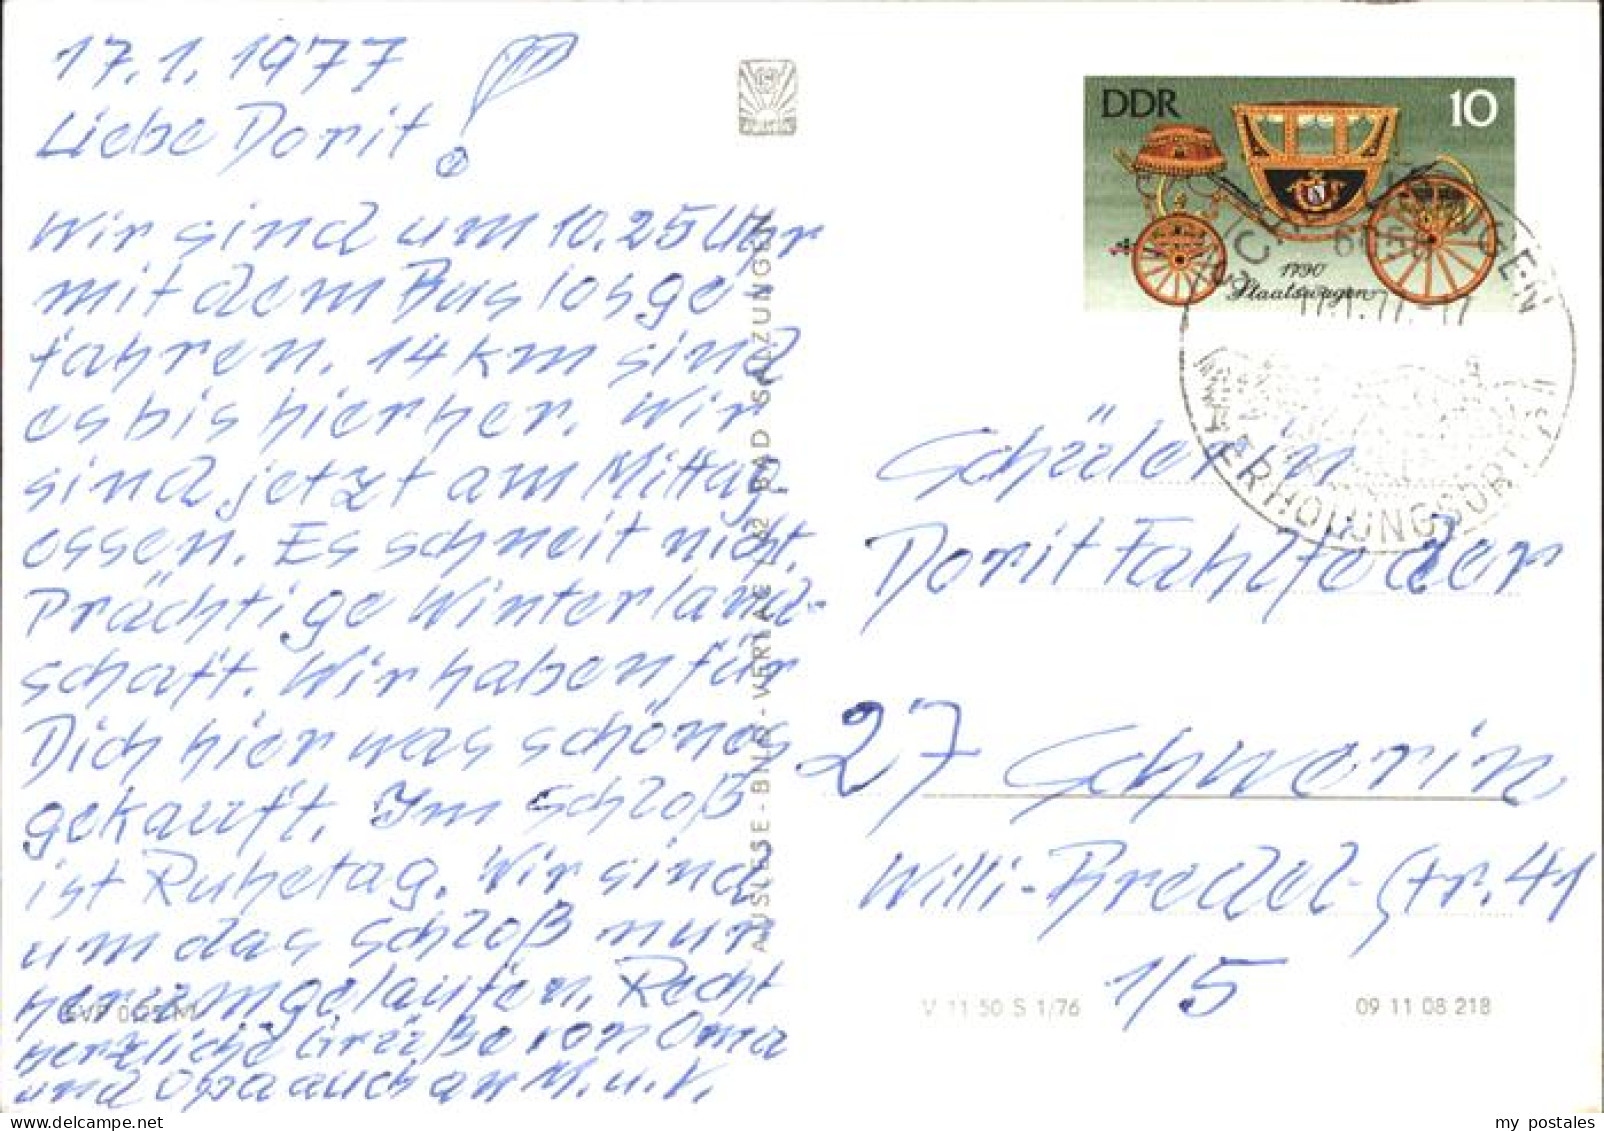 17.1.1977
Liebe Dorit!
Wir sind um 10.25 Uhr
mit dem Bus losge
fahren. 14 km sind
es bis hierher. Wir
sind jetzt am Mittag-
essen. Es schneit nicht.
Prächtige Winterland-
schaft. Wir haben für
Dich hier was schönes
gekauft. Im Schloß
ist Ruhetag. Wir sind
um das Schloß nur
herumgelaufen. Recht
herzliche Grüße von Oma
und Opa auch an M. u. V.
AUSLESE-BILD-VERLAG 62 BAD SALZUNGEN
DDR
10
1790
Staatswagen
17.1.77-17
ERHOLUNGSORT
Schülerin
Dorit Fahlfeder
27 Schwerin
Willi-Bredel-Str. 41
1/5
V 11 50 S 1/76
09 11 08 218
EVP 0,25 M
my postales